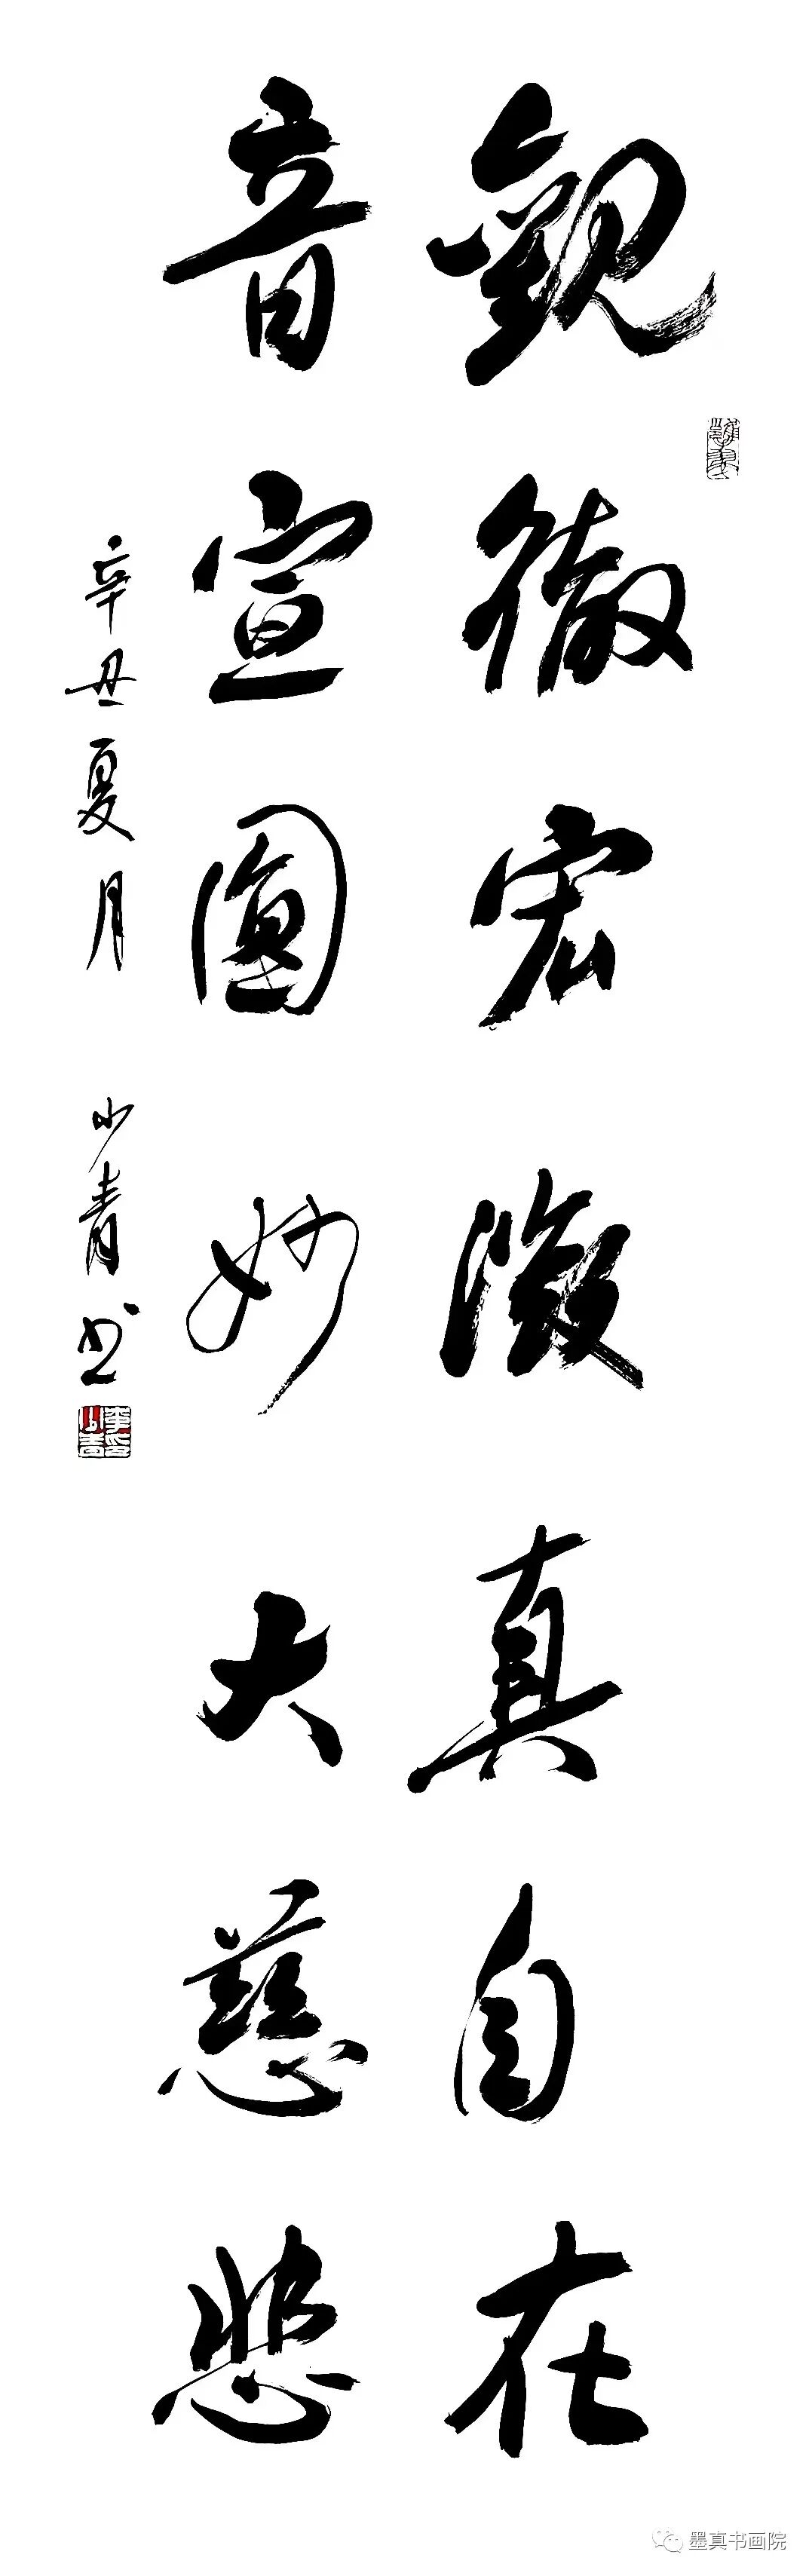 觀徹宏微真自在
音宣圓妙大慈悲
辛丑夏月 少青书
墨真书画院